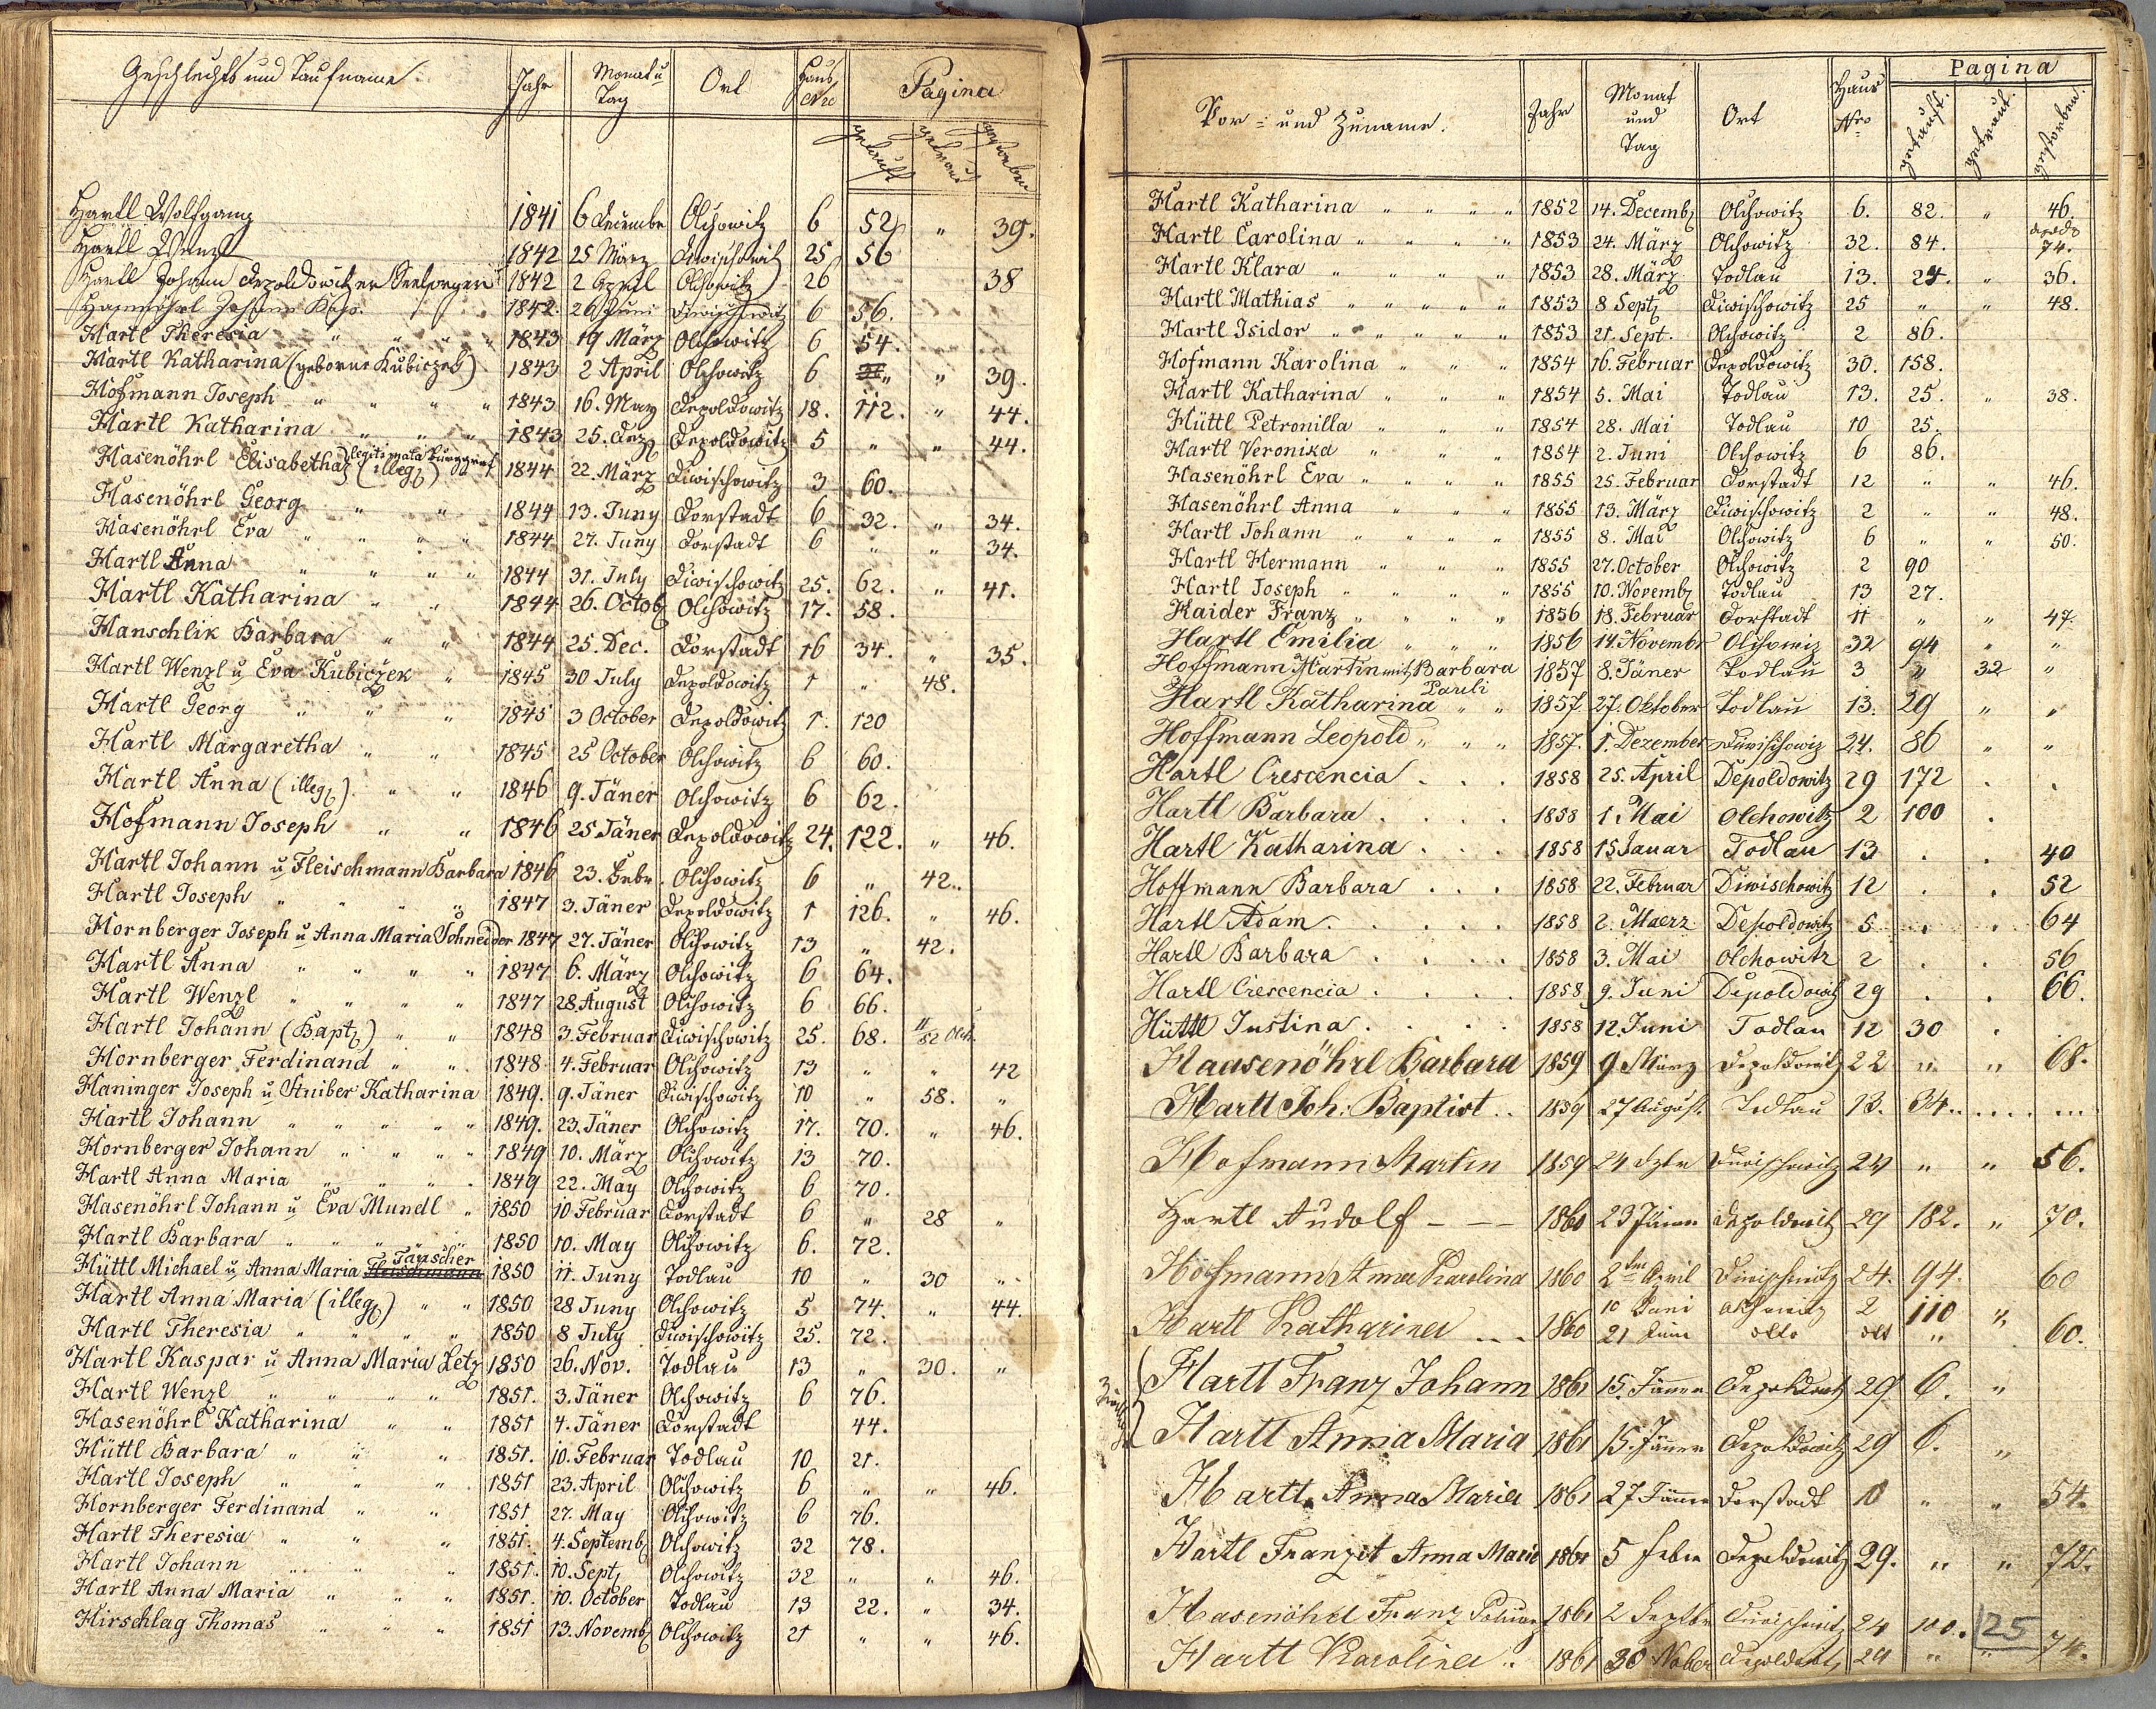 Geschlechts und Taufname. Jahr Monat u Tag Ort Haus Nro Pagina
getauft getraut gestorben
Hartl Wolfgang 1841 6 Decembr Olchowitz 6 52 " 39.
Hartl Wenzl 1842 25 März Diwischowitz 25 56
Hartl Johann Depoldowitzer 1842 2 April Olchowitz 26 38
Hasenöhrl Johann 1842. 26 Juni Diwischowitz 6 56.
Hartl Theresia " " " " 1843 19 März Olchowitz 6 54.
Hartl Katharina (geborne Kubiczek) 1843 2 April Olchowitz 6 " 39.
Hofmann Joseph " " " " 1843 16. May Depoldowitz 18. 112. " 44.
Hartl Katharina " " " 1843 25. Dez Depoldowitz 5 " " 44.
Hasenöhrl Elisabetha (illeg) legitimata Burggraf 1844 22. März Diwischowitz 3 60.
Hasenöhrl Georg " " 1844 13. Juny Dorstadt 6 32. " 34.
Hasenöhrl Eva " " " " 1844 27. Juny Dorstadt 6 " " 34.
Hartl Anna " " " " 1844 31. July Diwischowitz 25. 62. " 41.
Hartl Katharina " " 1844 26. Octob Olchowitz 17. 58.
Hanschlik Barbara " " 1844 25. Dec. Dorstadt 16 34. " 35.
Hartl Wenzl u Eva Kubiczek " 1845 30 July Depoldowitz 1 " 48.
Hartl Georg " " " 1845 3 October Depoldowitz 1. 120
Hartl Margaretha " " 1845 25 October Olchowitz 6 60.
Hartl Anna (illeg). " " 1846 9. Jäner Olchowitz 6 62.
Hofmann Joseph " " 1846 25 Jäner Depoldowitz 24. 122. " 46.
Hartl Johann u Fleischmann Barbara 1846 23. Febr. Olchowitz 6 " 42.
Hartl Joseph " " " " 1847 3. Jäner Depoldowitz 1 126. " 46.
Hornberger Joseph u Anna Maria Schneider 1847 27. Jäner Olchowitz 13 " 42.
Hartl Anna " " " " 1847 6. März Olchowitz 6 64.
Hartl Wenzl " " " " 1847 28. August Olchowitz 6 66.
Hartl Johann (Bapt) " " 1848 3. Februar Diwischowitz 25. 68. II/82 Olch.
Hornberger Ferdinand " " 1848 4. Februar Olchowitz 13 " " 42
Haninger Joseph u Stuiber Katharina 1849. 9. Jäner Diwischowitz 10 " 58. "
Hartl Johann " " " " " 1849. 23. Jäner Olchowitz 17. 70. " 46.
Hornberger Johann " " " " 1849 10. März Olchowitz 13 70.
Hartl Anna Maria " " " " 1849 22. May Olchowitz 6 70.
Hasenöhrl Johann u Eva Mundl " 1850 10 Februar Dorstadt 6 " 28 "
Hartl Barbara " " " " " 1850 10. May Olchowitz 6. 72.
Hüttl Michael u Anna Maria Fleischmann Täuscher 1850 11. Juny Todlau 10 " 30 "
Hartl Anna Maria (illeg) " " 1850 28 Juny Olchowitz 5 74. " 44.
Hartl Theresia " " " " 1850 8 July Diwischowitz 25. 72.
Hartl Kaspar u Anna Maria Letz 1850 26. Nov. Todlau 13 " 30. "
Hartl Wenzl " " " " 1851. 3. Jäner Olchowitz 6 76.
Hasenöhrl Katharina " " 1851 4. Jäner Dorstadt 44.
Hüttl Barbara " " " 1851. 10. Februar Todlau 10 21.
Hartl Joseph " " " 1851 23. April Olchowitz 6 " " 46.
Hornberger Ferdinand " " 1851 27. May Olchowitz 6 76.
Hartl Theresia " " " 1851. 4. Septemb Olchowitz 32 78.
Hartl Johann " " " 1851. 10. Sept Olchowitz 32 " " 46.
Hartl Anna Maria " " " 1851. 10. October Todlau 13 22. " 34.
Hirschlag Thomas " " " 1851 13. Novemb Olchowitz 21 " " 46.
Vor- und Zuname. Jahr Monat und Tag Ort Haus Nro Pagina
getauft. getraut. gestorben.
Hartl Katharina " " " " 1852 14. Decemb Olchowitz 6. 82. " 46.
Hartl Carolina " " " " 1853 24. März Olchowitz 32. 84. 74.
Hartl Klara " " " " " 1853 28. März Todlau 13. 24. " 36.
Hartl Mathias " " " " " 1853 8 Sept Diwischowitz 25 " " 48.
Hartl Isidor " " " " " 1853 21. Sept. Olchowitz 2 86.
Hofmann Karolina " " " 1854 16. Februar Depoldowitz 30. 158.
Hartl Katharina " " " 1854 5. Mai Todlau 13. 25. " 38.
Hüttl Petronilla " " " 1854 28. Mai Todlau 10 25.
Hartl Veronika " " " 1854 2. Juni Olchowitz 6 86.
Hasenöhrl Eva " " " " 1855 25. Februar Dorstadt 12 " " 46.
Hasenöhrl Anna " " " 1855 13. März Diwischowitz 2 " " 48.
Hartl Johann " " " " 1855 8. Mai Olchowitz 6 " " 50.
Hartl Hermann " " " 1855 27. October Olchowitz 2 90
Hartl Joseph " " " " 1855 10. Novemb Todlau 13 27.
Haider Franz " " " " 1856 18. Februar Dorstadt 11 " " 47.
Hartl Emilia " " " 1856 14. Novembr Olchowiz 32 94 " "
Hoffmann Martin mit Barbara Pauli 1857 8. Jäner Todlau 3 " 32 "
Hartl Katharina " " 1857. 27. Oktober Todlau 13. 29 " "
Hoffmann Leopold " " " 1857. 1. Dezember Diwischowiz 24. 86 " "
Hartl Crescencia . . . 1858 25. April Depoldowitz 29 172 . .
Hartl Barbara . . . . 1858 1. Mai Olchowitz 2 100 .
Hartl Katharina . . . 1858 15 Januar Todlau 13 . . 40
Hoffmann Barbara . . . 1858 22. Februar Diwischowitz 12 . . 52
Hartl Adam . . . . . 1858 2. Maerz Depoldowitz 5 . . 64
Hartl Barbara . . . . 1858 3. Mai Olchowitz 2 . . 56
Hartl Crescencia . . . . 1858 9. Juni Depoldowitz 29 . . 66.
Hüttl Justina . . . . 1858 12. Juni Todlau 12 30 .
Haasenöhrl Barbara 1859 9. März Depoldowitz 22 " " 68.
Hartl Joh: Baptist .. 1859 27 August. Todlau 13. 34.. .... ...
Hofmann Martin 1859 24 Diwischowitz 24 " " 56.
Hartl Rudolf - -- 1860 23 Jäner Depoldowitz 29 182. " 70.
Hofmann Anna Karolina 1860 2ten April Diwischwitz 24. 94. 60
Hartl Katharina ... 1860 10 Juni Olchowitz 2 110 "
21 Juni dtto dtt " 60.
Hartl Franz Johann 1861 15. Jänner Depoldowitz 29 6. "
Hartl Anna Maria 1861 15. Jänner Depoldowitz 29 6. "
Hartl Anna Maria 1861 27 Jänner Dorstadt 10 " " 54.
Hartl Franz et Anna Maria 1861 5 Feber Depoldowitz 29. " " 72.
Hasenöhrl Franz 1861 2 Septbr Diwischwitz 24 100. 125
Hartl Karolina .. 1861 30 Nober Depoldowitz 29 " " 74.